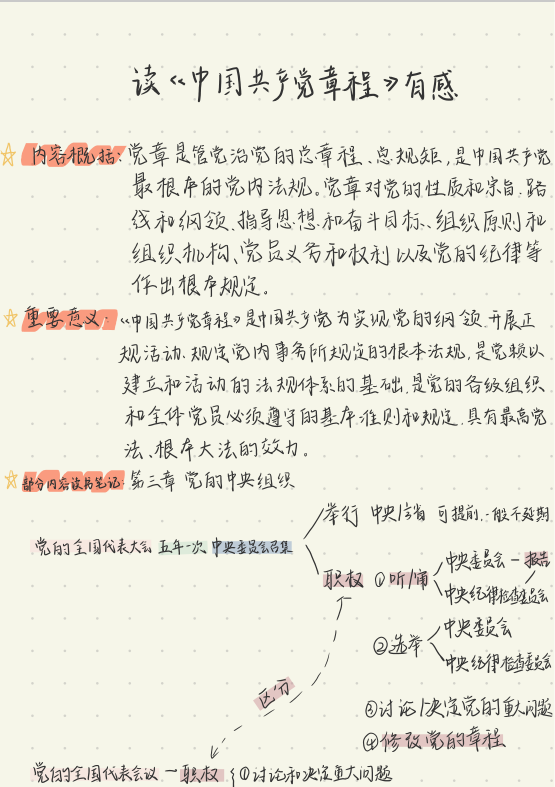 读《中国共产党章程》有感
内容概括：党章是管党治党的总章程、总规矩，是中国共产党
最根本的党内法规。党章对党的性质和宗旨、路
线和纲领、指导思想和奋斗目标、组织原则和
组织机构、党员义务和权利以及党的纪律等
作出根本规定。
重要意义：《中国共产党章程》是中国共产党为实现党的纲领、开展正
规活动、规定党内事务所规定的根本法规，是党赖以
建立和活动的法规体系的基础，是党的各级组织
和全体党员必须遵守的基本准则和规定，具有最高党
法、根本大法的效力。
部分内容读书笔记：第三章 党的中央组织
举行 中央/省 可提前，一般不延期
党的全国代表大会 五年一次 中央委员会召集
职权 ①听/审
中央委员会 — 报告
中央纪律检查委员会
②选举
中央委员会
中央纪律检查委员会
区分
③讨论/决定党的重大问题
④修改党的章程
党的全国代表会议 — 职权 { ①讨论和决定重大问题